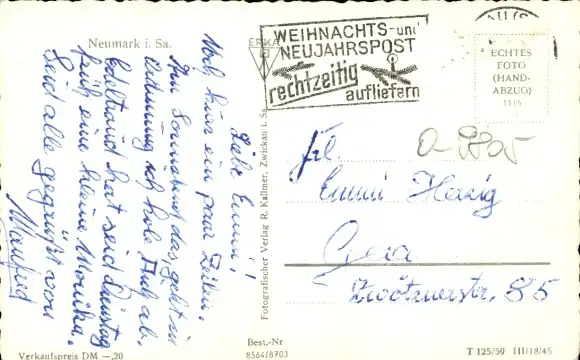 Neumark i. Sa.
Liebe Emmi!
Noch kurz ein paar Zeilen.
Am Sonnabend das geht in
Ordnung ich hole Dich ab.
Edeltraud hat seid Dienstag
früh eine kleine Monika.
Seid alle gegrüßt von
Manfred
WEIHNACHTS- und
NEUJAHRSPOST
rechtzeitig
aufliefern
ECHTES
FOTO
(HAND-
ABZUG)
1115
Frl.
Emmi Herzig
Gera
Zwötznerstr. 85
Fotografischer Verlag R. Kallmer, Zwickau i. Sa.
Verkaufspreis DM —,20
Best.-Nr
8564/8703
T 125/59 III/18/45